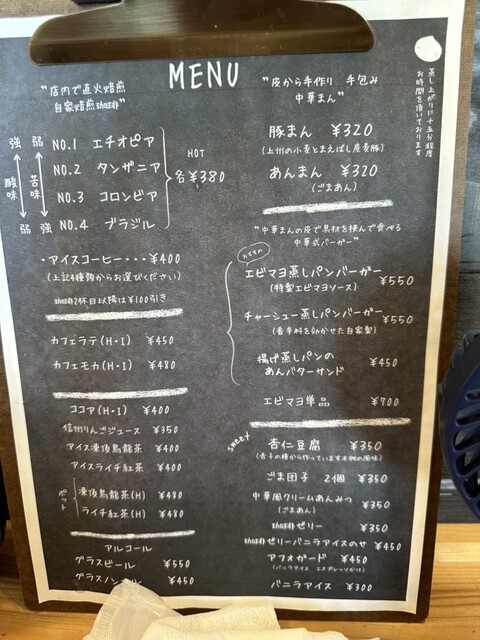 MENU
"店内で直火焙煎
自家焙煎珈琲"
強 弱
酸味 苦味
弱 強
NO.1 エチオピア
NO.2 タンザニア
NO.3 コロンビア
NO.4 ブラジル
HOT
各¥380
・アイスコーヒー・・・¥400
(上記4種類からお選びください)
珈琲2杯目以降は¥100引き
カフェラテ(H・I) ¥450
カフェモカ(H・I) ¥480
ココア(H・I) ¥400
信州りんごジュース ¥350
アイス凍頂烏龍茶 ¥400
アイスライチ紅茶 ¥400
ポット
凍頂烏龍茶(H) ¥480
ライチ紅茶(H) ¥480
アルコール
グラスビール ¥550
グラスノン ル ¥450
"皮から手作り 手包み
中華まん"
蒸し上がりに十五分程度
お時間を頂いております
豚まん ¥320
(上州の小麦とまえばし産麦豚)
あんまん ¥320
(ごまあん)
"中華まんの皮で具材を挟んで食べる
中華式バーガー"
おすすめ
エビマヨ蒸しパンバーガー ¥550
(特製エビマヨソース)
チャーシュー蒸しパンバーガー ¥550
(香辛料を効かせた自家製)
揚げ蒸しパンの
あんバターサンド ¥450
エビマヨ単品 ¥700
SWEET
杏仁豆腐 ¥350
(杏子の種から作っています本物の風味)
ごま団子 2個 ¥350
中華風クリームあんみつ ¥350
(ごまあん)
珈琲ゼリー ¥350
珈琲ゼリーバニラアイスのせ ¥450
アフォガード ¥450
(バニラアイス エスプレッソかけ)
バニラアイス ¥300